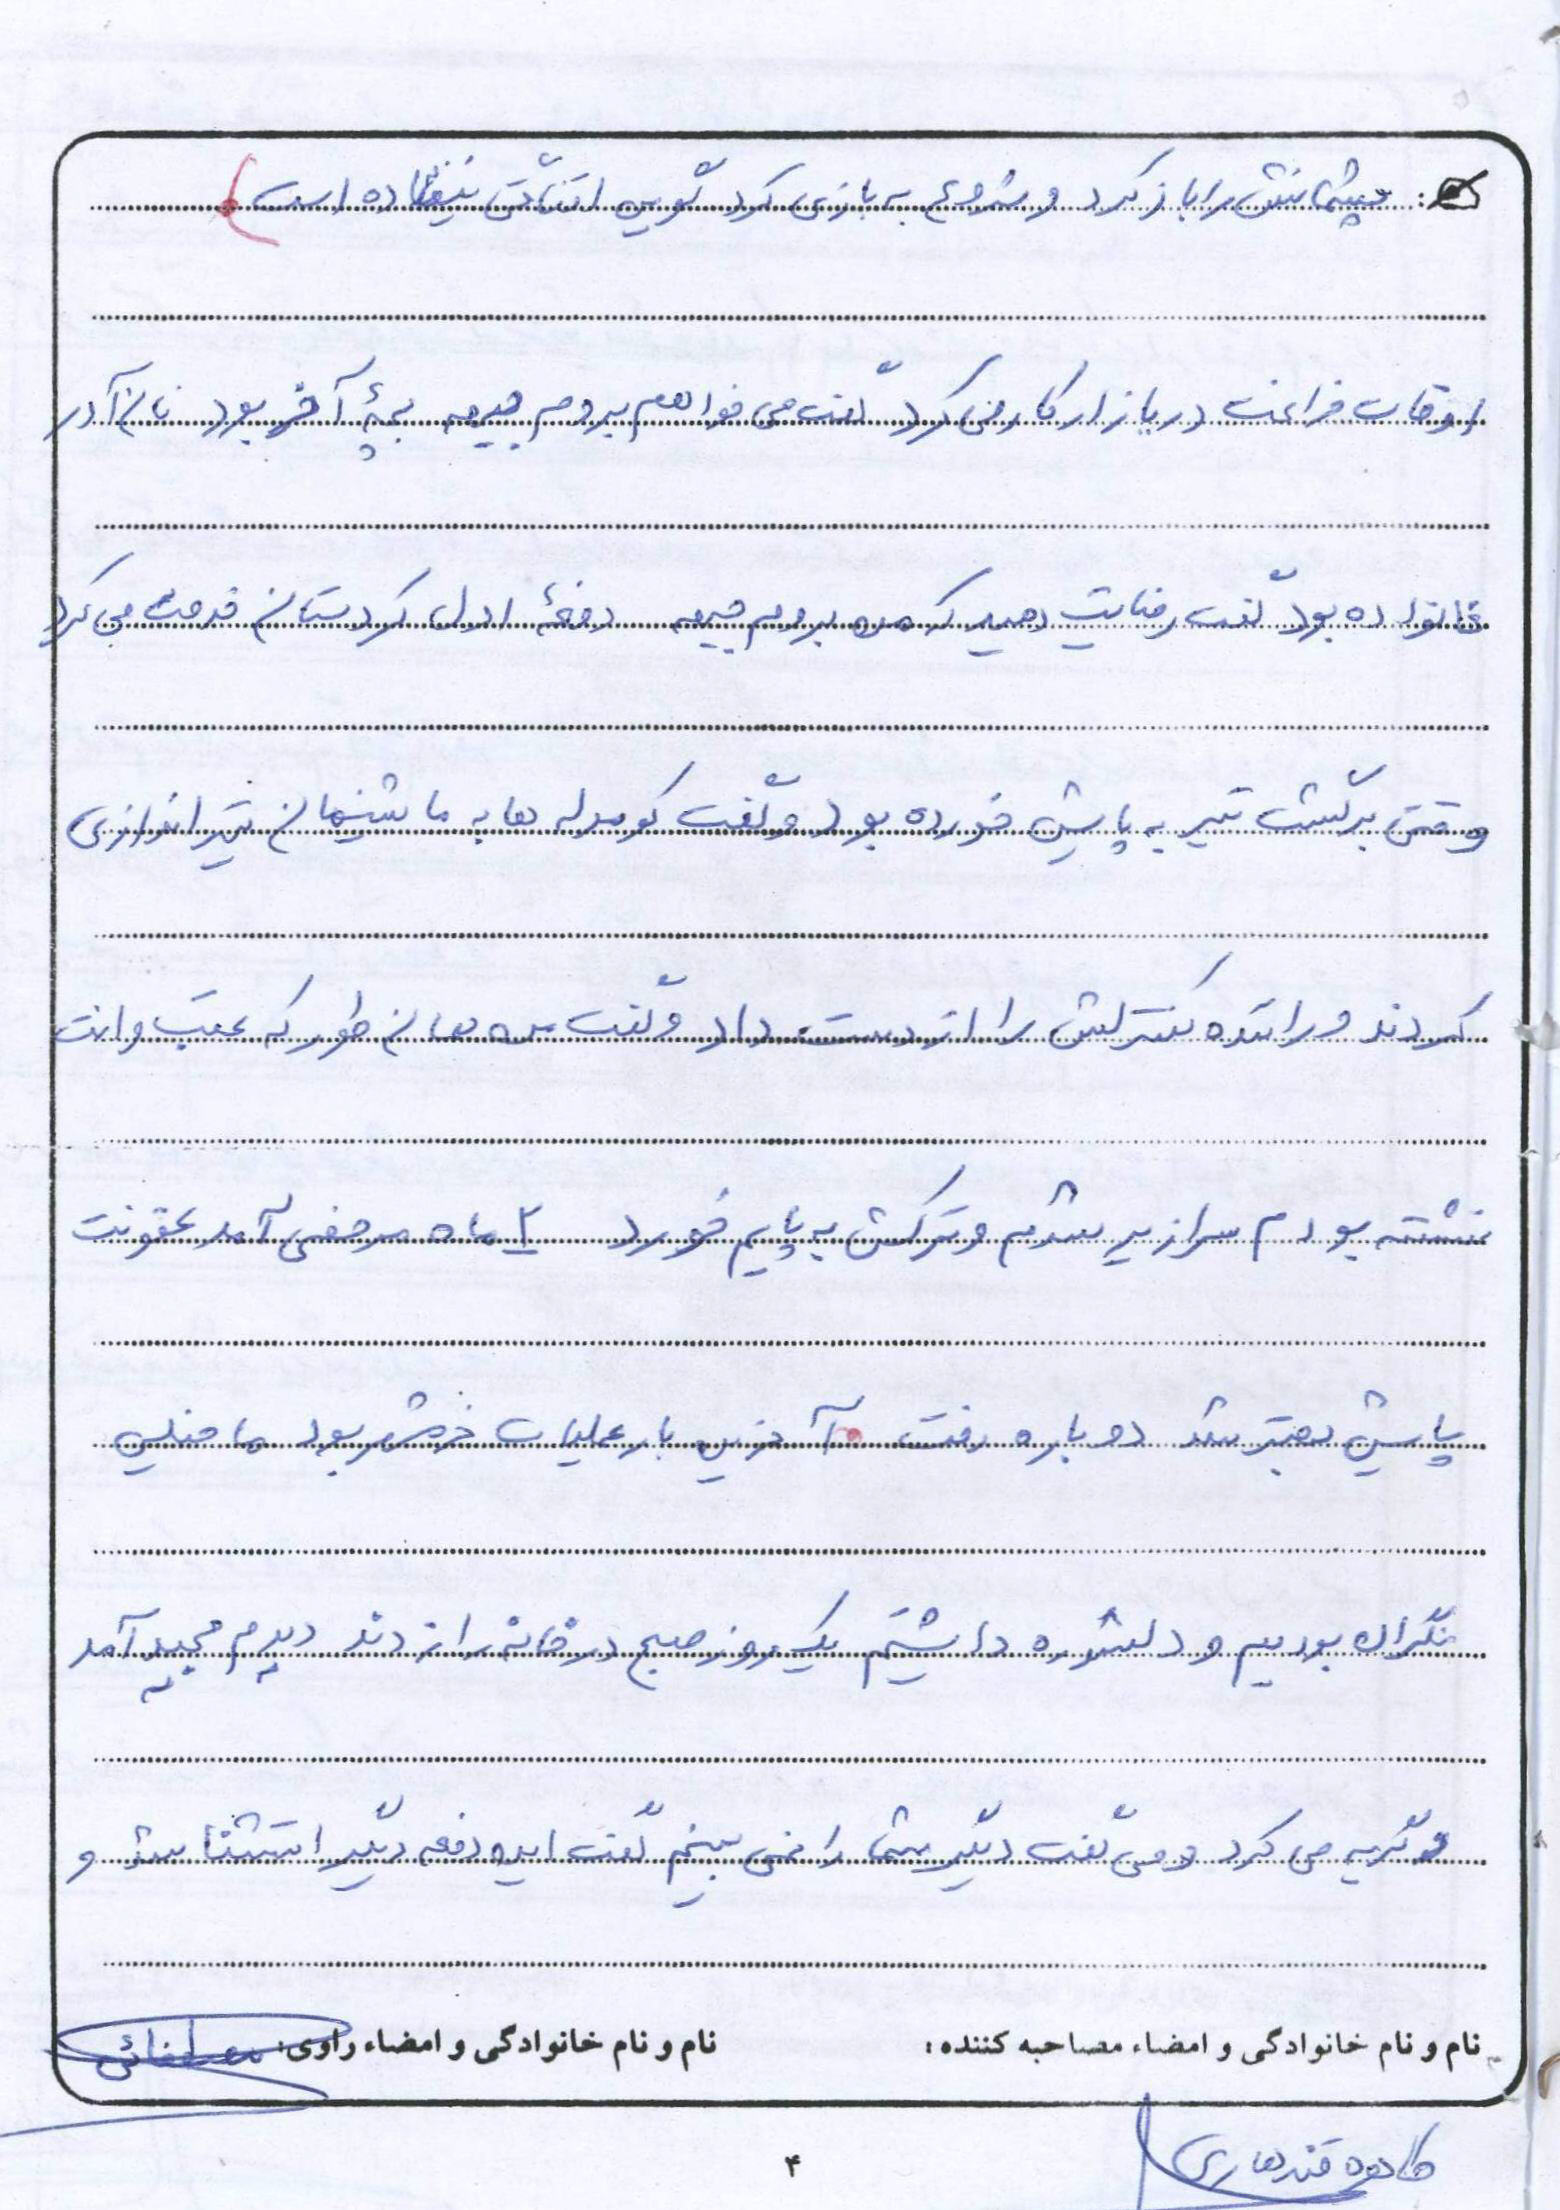 چشمانش را باز کرد و شروع به بازی کرد گویی اتفاقی نیفتاده است
اوقات فراغت در بازار کار می کرد گفت می خواهم بروم جبهه بچه آخر بود نان آور
خانواده بود گفت رضایت دهید که من بروم جبهه دفعهٔ اول کردستان خدمت می کرد
وقتی برگشت تیر به پایش خورده بود و گفت کومله ها به ماشینمان تیراندازی
کردند و راننده کنترلش را از دست داد و گفت من همان طور که عقب وانت
نشسته بودم سرازیر شدم و ترکش به پایم خورد ۲ ماه مرخصی آمد عفونت
پایش بهتر شد دوباره رفت آخرین بار عملیات خرمشهر بود ما خیلی
نگران بودیم و دلشوره داشتیم یک روز صبح در خانه را زدند دیدم مجید آمد
و گریه می کرد و می گفت دیگر شما را نمی بینم گفت این دفعه دیگر استثنا شد و
نام و نام خانوادگی و امضاء مصاحبه کننده: نام و نام خانوادگی و امضاء راوی: مصطفائی
قندهاری
۴